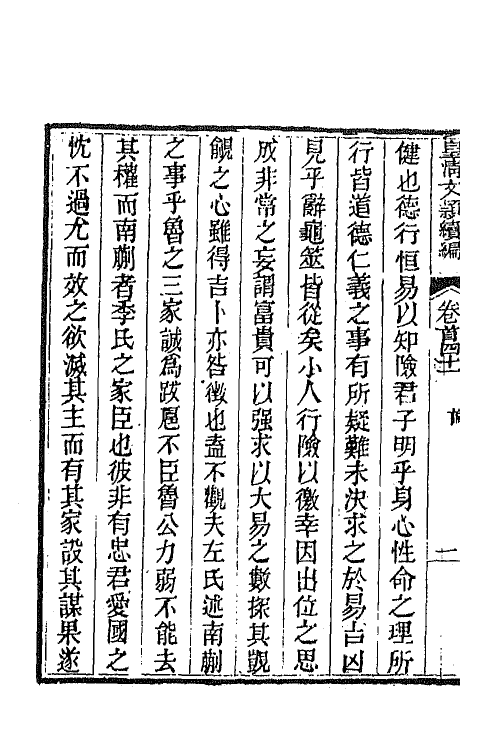 皇清文穎續編 卷首四十 論 二
健也德行恒易以知險君子明乎身心性命之理所
行皆道德仁義之事有所疑難未決求之於易吉凶
見乎辭龜筮皆從矣小人行險以徼幸因出位之思
成非常之妄謂富貴可以强求以大易之數探其覬
覦之心雖得吉卜亦咎徵也盍不觀夫左氏述南蒯
之事乎魯之三家誠為跋扈不臣魯公力弱不能去
其權而南蒯者季氏之家臣也彼非有忠君愛國之
忱不過尤而效之欲滅其主而有其家設其謀果遂